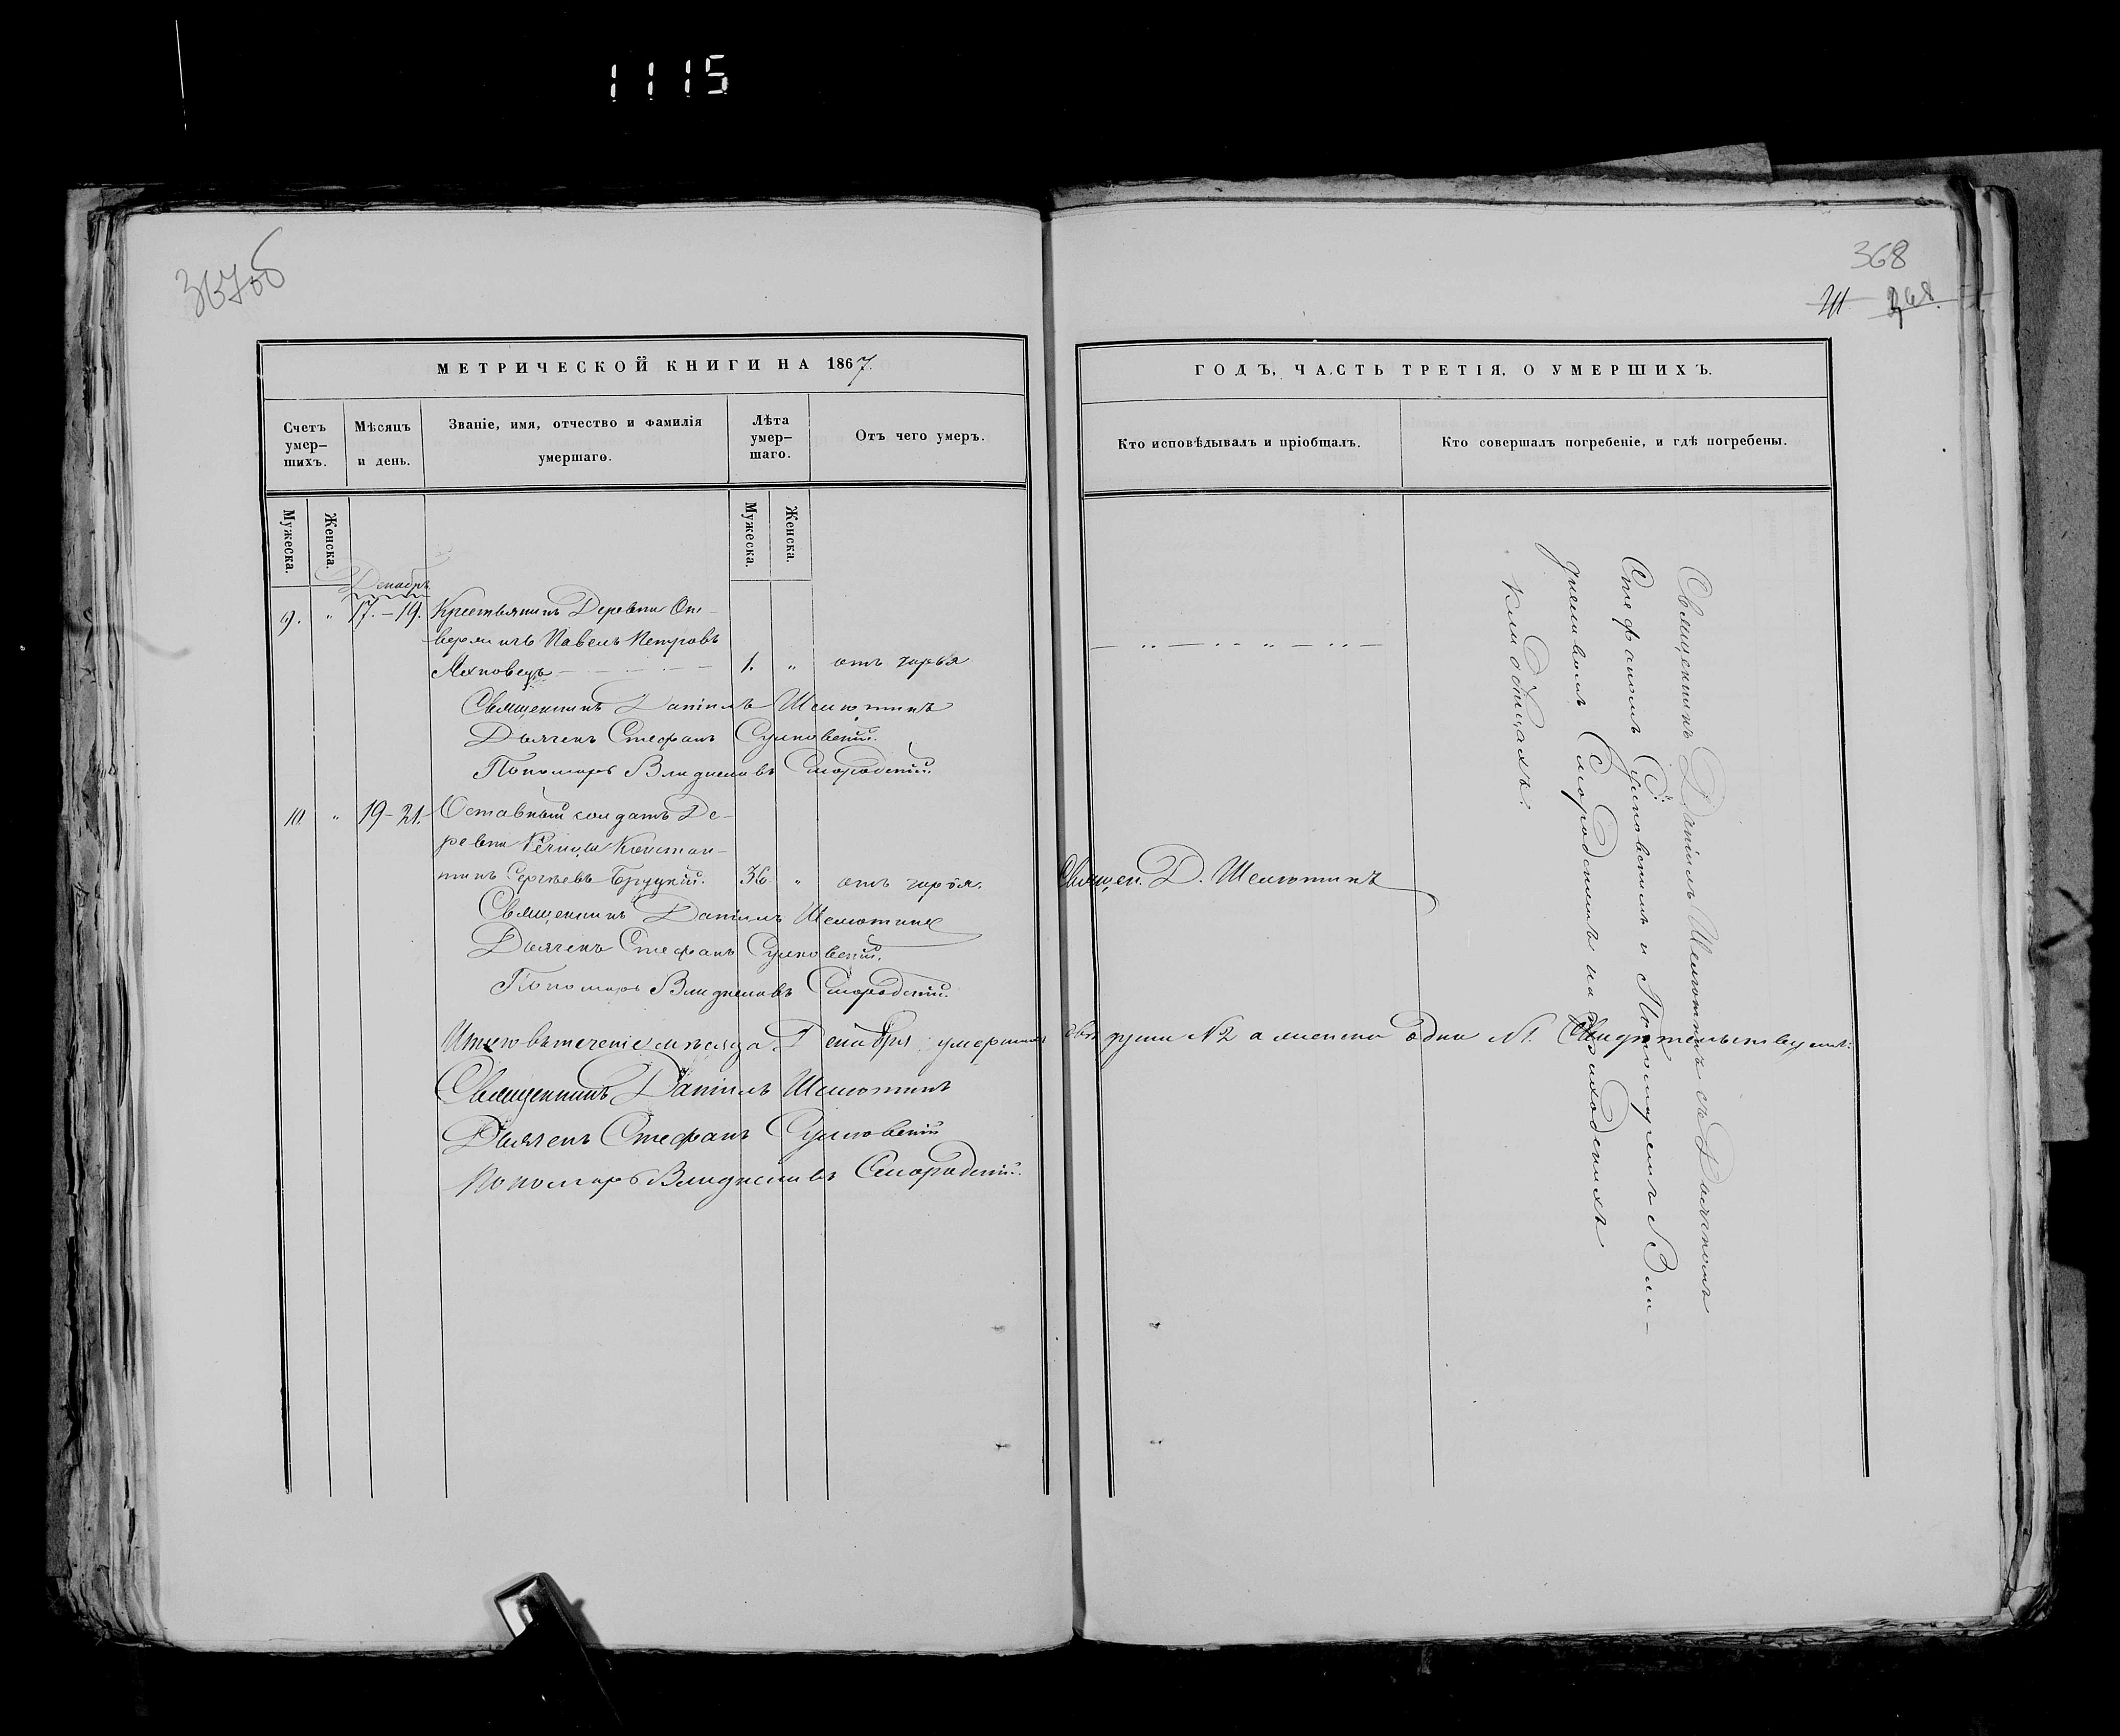 1115
367об
368
368.
МЕТРИЧЕСКОЙ КНИГИ НА 1867.
ГОДЪ, ЧАСТЬ ТРЕТІЯ, О УМЕРШИХЪ.
Счетъ умер-
шихъ.
Мѣсяцъ
и день.
Званіе, имя, отчество и фамилія
умершаго.
Лѣта
умер-
шаго.
Отъ чего умеръ.
Кто исповѣдывалъ и пріобщалъ.
Кто совершалъ погребеніе, и гдѣ погребены.
Мужеска.
Женска.
Мужеска.
Женска.
Декабрь
9. " 17.-19. Крестьянинъ Деревни
Павелъ Петровъ
Яхновецъ 1. " отъ
Священникъ Даніилъ Шелютинъ
Дьячекъ Стефанъ
Пономарь Владиславъ Смородскій.
10 " 19-21. Оставный солдатъ Де-
ревни Рѣчицы Констан-
тинъ Сергѣевъ Бруцкій. 36 " отъ
Священ. Д. Шелютинъ
Священникъ Даніилъ Шелютинъ
Дьячекъ Стефанъ
Пономарь Владиславъ Смородскій.
Итого въ теченіе мѣсяца Декабря умершихъ двѣ души №2 а женска одна №1. Свидѣтельствуемъ:
Священникъ Даніилъ Шелютинъ
Дьячекъ Стефанъ
Пономарь Владиславъ Смородскій.
Священникъ Даніилъ Шелютинъ съ Дьячкомъ
Стефаномъ и Пономаремъ Вла-
диславомъ Смородскимъ на приходскихъ
кладбищахъ.